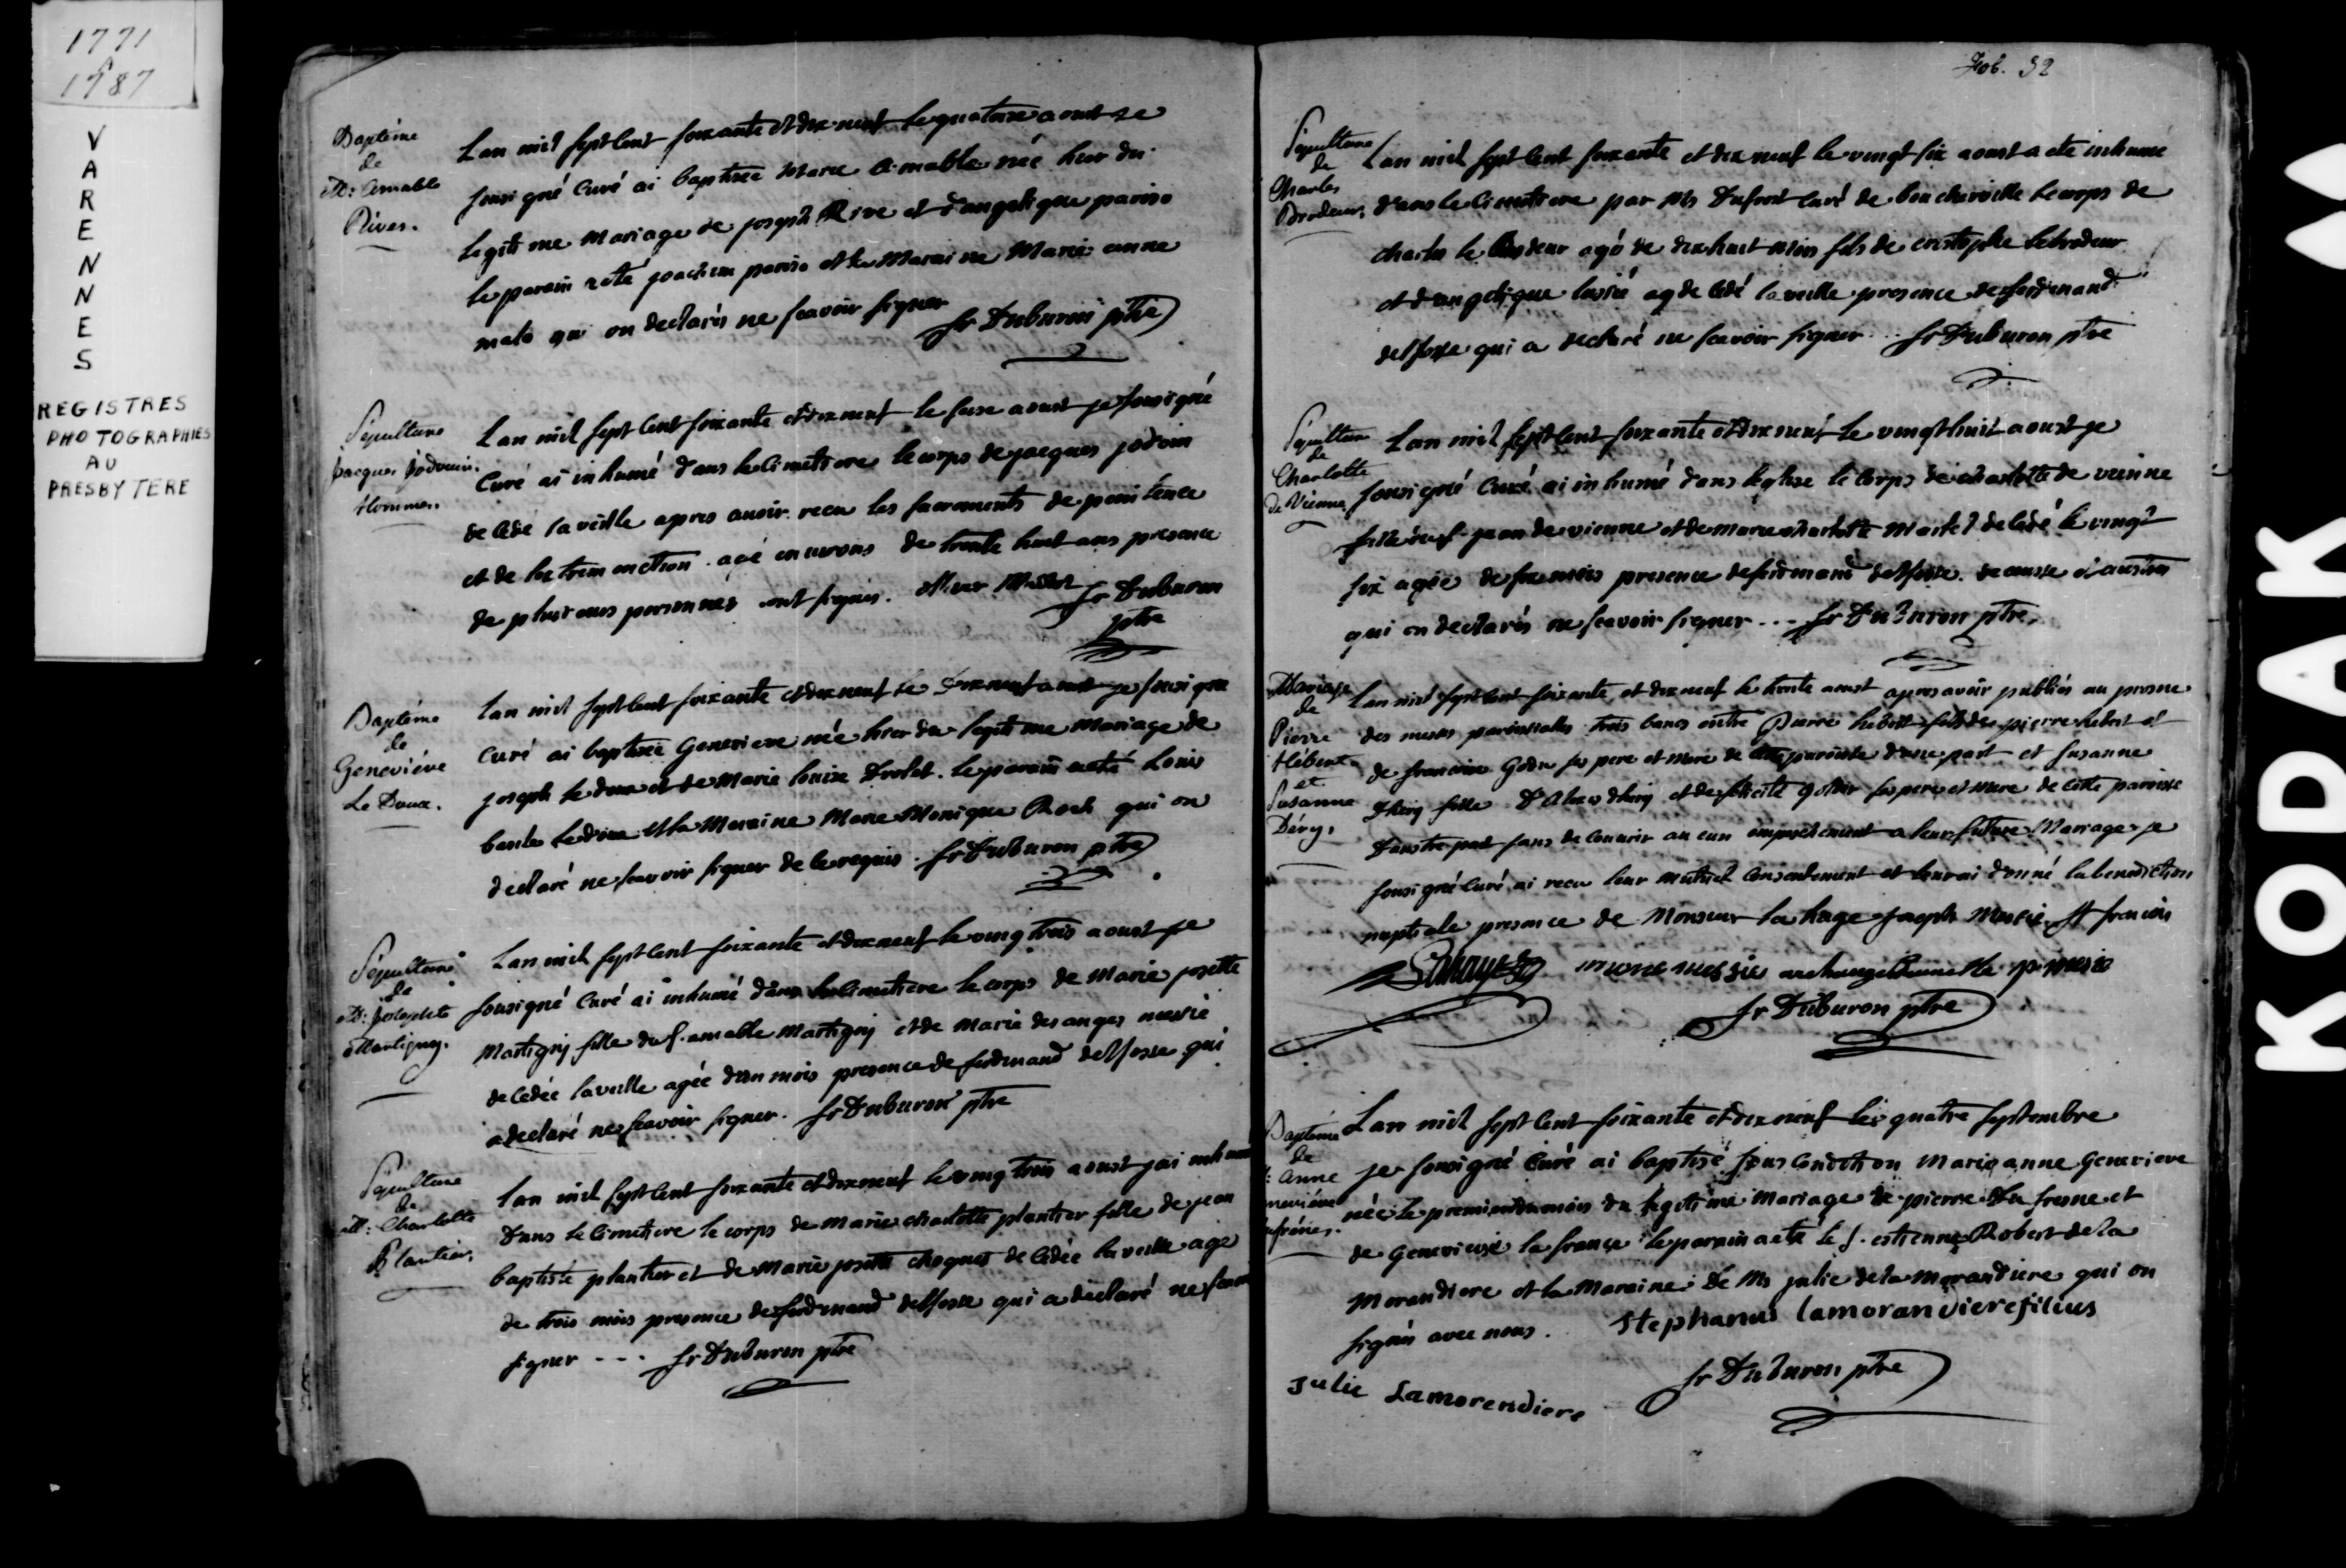 1771
à
1787
VARENNES
REGISTRES
PHOTOGRAPHIES
AU
PRESBYTERE
Baptême
de
M: Amable
Rives.
Lan mil sept cent soixante et dix neuf le quatorze aoust je
sousigné Curé ai baptisée Marie Aimable née hier du
legitime Mariage de joseph Rive et d'angelique pariso
le parain a eté joachim pariso et la Maraine Marie anne
malo qui on declarés ne scavoir signer
fr Duburon ptre
Sépulture
jacques jodouin.
Homme.
Lan mil sept cent soixante et dix neuf le seize aoust je sousigné
Curé ai inhumé dans le cimetiere le corps de jacques jodoin
decedé la veille apres avoir recu les sacrements de penitence
et de lextrem onction agé environs de trente huit ans presence
de plusieurs personnes ont signés.
fr Duburon
ptre
Baptême
de
Geneviéve
Le Doux.
Lan mil sept cent soixante et dix neuf le dix neuf aoust je sousigné
Curé ai baptisée Genevieve née hier du legitime Mariage de
joseph ledoux et de Marie louise Drolet. le parain a eté Louis
basile ledoux et la Maraine Marie Monique Roch qui on
declaré ne scavoir signer de le requis. fr Duburon ptre
Sépulture
de
M: josephte
Martigny.
Lan mil sept cent soixante et dix neuf le vingt trois aoust je
sousigné Curé ai inhumé dans le cimetiere le corps de Marie josette
Martigny fille du s. amable Martigny et de Marie des anges messié
decedée la veille agée d'un mois presence de ferdinand delfosse qui
a declaré ne scavoir signer. fr Duburon ptre
Sépulture
de
M: Charlotte
Plantier.
Lan mil sept cent soixante et dix neuf le vingt trois aoust jai inhumé
dans le cimetiere le corps de Marie charlotte plantier fille de jean
baptiste plantier et de Marie josette choquet decedée la veille agé
de trois mois presence de ferdinand delfosse qui a declaré ne
signer - - - fr Duburon ptre
Fol. 32
Sépulture
de
Charles
Brodeur.
Lan mil sept cent soixante et dix neuf le vingt six aoust a eté inhumé
dans le cimetiere par Ms Dufrost curé de boucherville le corps de
charles le brodeur agé de dix huit mois fils de cristophe lebrodeur
et d'angelique lussié decedé la veille presence de ferdinand
delfosse qui a declaré ne scavoir signer .. fr Duburon ptre
Sépulture
de
Charlotte
de Vienne
Lan mil sept cent soixante et dix neuf le vingt huit aoust je
sousigné Curé ai inhumé dans leglise le corps de charlotte de vienne
fille du s. jean de vienne et de marie charlotte Martel decedé le vingt
six agée de six mois presence de ferdinand delfosse. et autres
qui on declarés ne scavoir signer - - - fr Duburon ptre.
Mariage
de
Pierre
Hébert
et
Susanne
Déry.
Lan mil sept cent soixante et dix neuf le trente aoust apres avoir publiés au prosne
des messes paroissialles trois bancs entre Pierre hebert fils de pierre hebert et
de francoise Godu ses pere et mere de cette paroisse d'une part et susanne
Dhery fille D'Alexis dhery et de felicité ses pere et mere de cette paroisse
d'austre part sans decouvrir au cun empechement a leur future Mariage je
sousigné Curé ai recu leur mutuel Consentement et leur ai donné la benediction
nuptiale presence de Monsieur la haye joseph Messié francois
Lahaye messier p messie
fr Duburon ptre
Baptême
de
anne
Lan mil sept cent soixante et dix neuf le quatre septembre
je sousigné Curé ai baptisé sous condition Marie anne Genevieve
née le premier du mois du legitime Mariage de pierre Du fresne et
de Genevieve la france le parain a eté le s. estienne Robert de la
Morandiere et la Maraine De Ms julie de la Morandiere qui on
signés avec nous. Stephanus lamorandiere filius
Julie Lamorendiere
fr Duburon ptre
KODAK